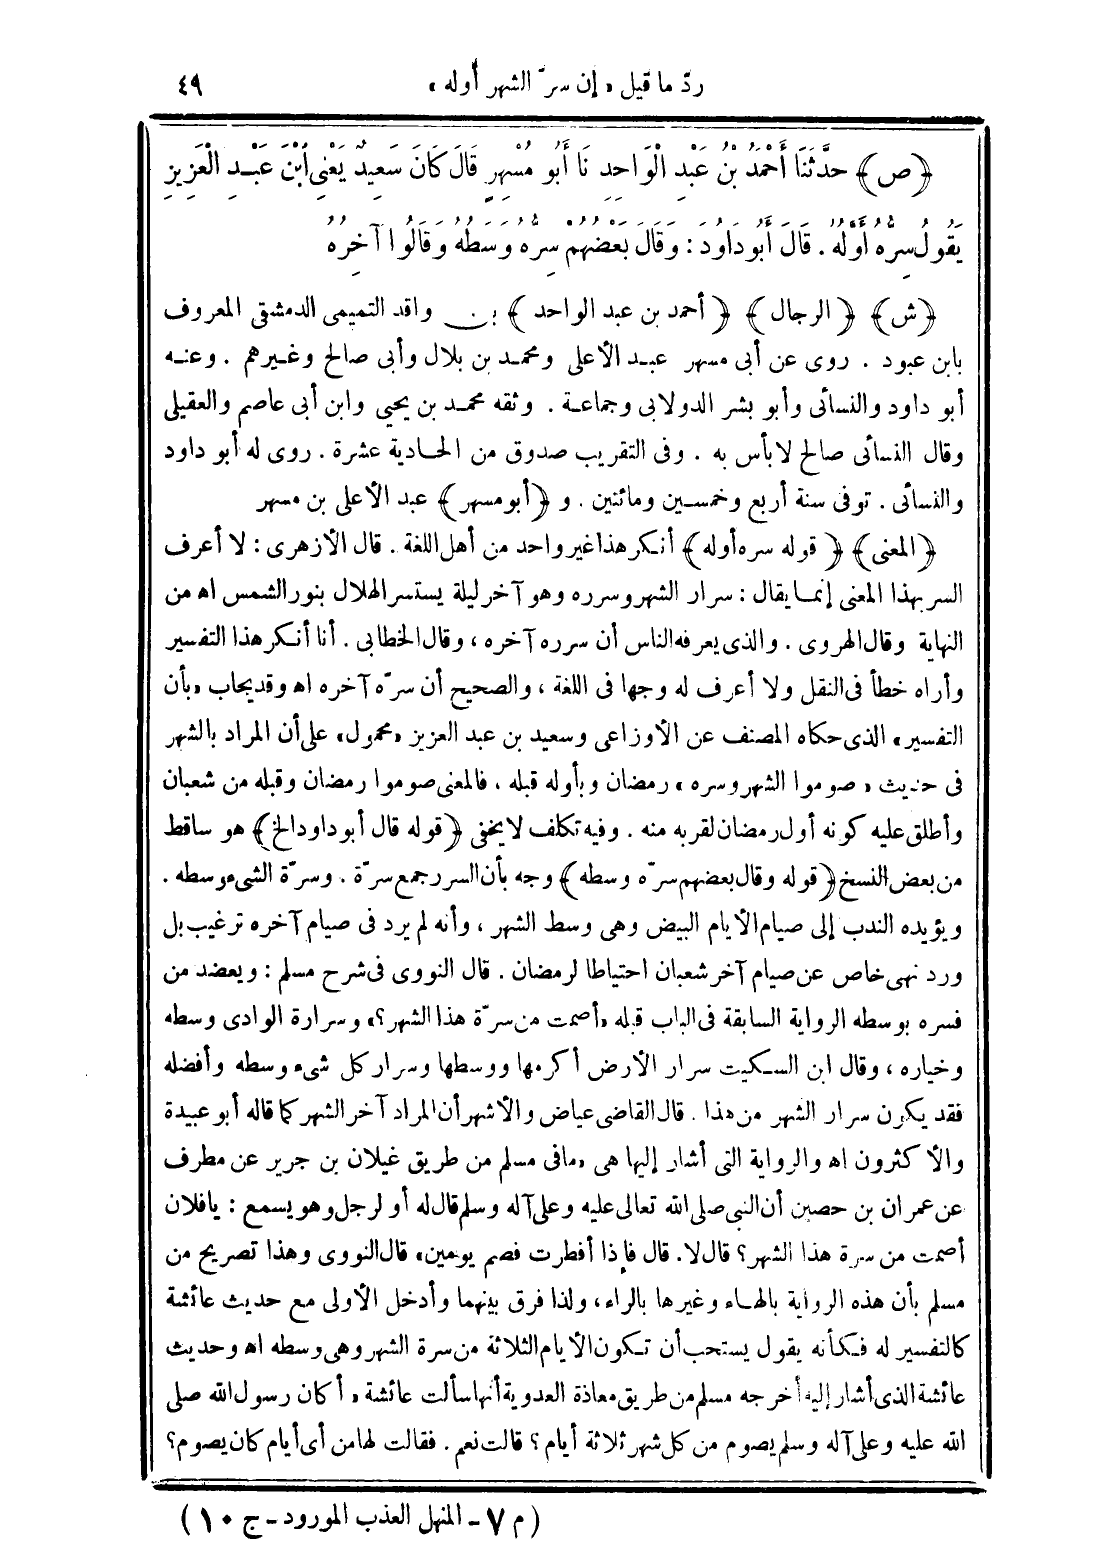 ردّ ما قيل «إن سرّ الشهر أوله» ٤٩
﴿ص﴾ حَدَّثَنَا أَحْمَدُ بْنُ عَبْدِ الْوَاحِدِ نَا أَبُو مُسْهِرٍ قَالَ كَانَ سَعِيدٌ يَعْنِى ابْنَ عَبْدِ الْعَزِيزِ
يَقُولُ سِرُّهُ أَوَّلُهُ. قَالَ أَبُو دَاوُدَ: وَقَالَ بَعْضُهُمْ سِرُّهُ وَسَطُهُ وَقَالُوا آخِرُهُ
﴿ش﴾ ﴿الرجال﴾ ﴿أحمد بن عبد الواحد﴾ بن واقد التميمى الدمشقى المعروف
بابن عبود . روى عن أبى مسهر عبد الأعلى ومحمد بن بلال وأبى صالح وغيرهم . وعنه
أبو داود والنسائى وأبو بشر الدولابى وجماعة . وثقه محمد بن يحيى وابن أبى عاصم والعقيلى
وقال النسائى صالح لا بأس به . وفى التقريب صدوق من الحادية عشرة . روى له أبو داود
والنسائى . توفى سنة أربع وخمسين ومائتين . و ﴿أبو مسهر﴾ عبد الأعلى بن مسهر
﴿المعنى﴾ ﴿قوله سره أوله﴾ أنكر هذا غير واحد من أهل اللغة . قال الأزهرى: لا أعرف
السر بهذا المعنى إنما يقال: سرار الشهر وسرره وهو آخر ليلة يستسر الهلال بنور الشمس اه من
النهاية وقال الهروى . والذى يعرفه الناس أن سرره آخره ، وقال الخطابى . أنا أنكر هذا التفسير
وأراه خطأ فى النقل ولا أعرف له وجها فى اللغة ، والصحيح أن سرّه آخره اه وقد يجاب «بأن
التفسير» الذى حكاه المصنف عن الأوزاعى وسعيد بن عبد العزيز «محمول» على أن المراد بالشهر
فى حديث «صوموا الشهر وسره» رمضان وبأوله قبله ، فالمعنى صوموا رمضان وقبله من شعبان
وأطلق عليه كونه أول رمضان لقربه منه . وفيه تكلف لا يخفى ﴿قوله قال أبو داود الخ﴾ هو ساقط
من بعض النسخ ﴿قوله وقال بعضهم سرّه وسطه﴾ وجه بأن السرر جمع سرّة . وسرّة الشىء وسطه .
ويؤيده الندب إلى صيام الأيام البيض وهى وسط الشهر ، وأنه لم يرد فى صيام آخره ترغيب بل
ورد نهى خاص عن صيام آخر شعبان احتياطا لرمضان . قال النووى فى شرح مسلم: ويعضد من
فسره بوسطه الرواية السابقة فى الباب قبله «أصمت من سرّة هذا الشهر؟» وسرارة الوادى وسطه
وخياره ، وقال ابن السكيت سرار الأرض أكرمها ووسطها وسرار كل شىء وسطه وأفضله
فقد يكون سرار الشهر من هذا . قال القاضى عياض والأشهر أن المراد آخر الشهر كما قاله أبو عبيدة
والأكثرون اه والرواية التى أشار إليها هى «مافى مسلم من طريق غيلان بن جرير عن مطرف
عن عمران بن حصين أن النبى صلى الله تعالى عليه وعلى آله وسلم قال له أو لرجل وهو يسمع: يافلان
أصمت من سرة هذا الشهر؟ قال لا. قال فإذا أفطرت فصم يومين» قال النووى وهذا تصريح من
مسلم بأن هذه الرواية بالهاء وغيرها بالراء، ولذا فرق بينهما وأدخل الأولى مع حديث عائشة
كالتفسير له فكأنه يقول يستحب أن تكون الأيام الثلاثة من سرة الشهر وهى وسطه اه وحديث
عائشة الذى أشار إليه أخرجه مسلم من طريق معاذة العدوية أنها سألت عائشة «أكان رسول الله صلى
الله عليه وعلى آله وسلم يصوم من كل شهر ثلاثة أيام؟ قالت نعم . فقالت لها من أى أيام كان يصوم؟
(م ٧ - المنهل العذب المورود - ج ١٠)